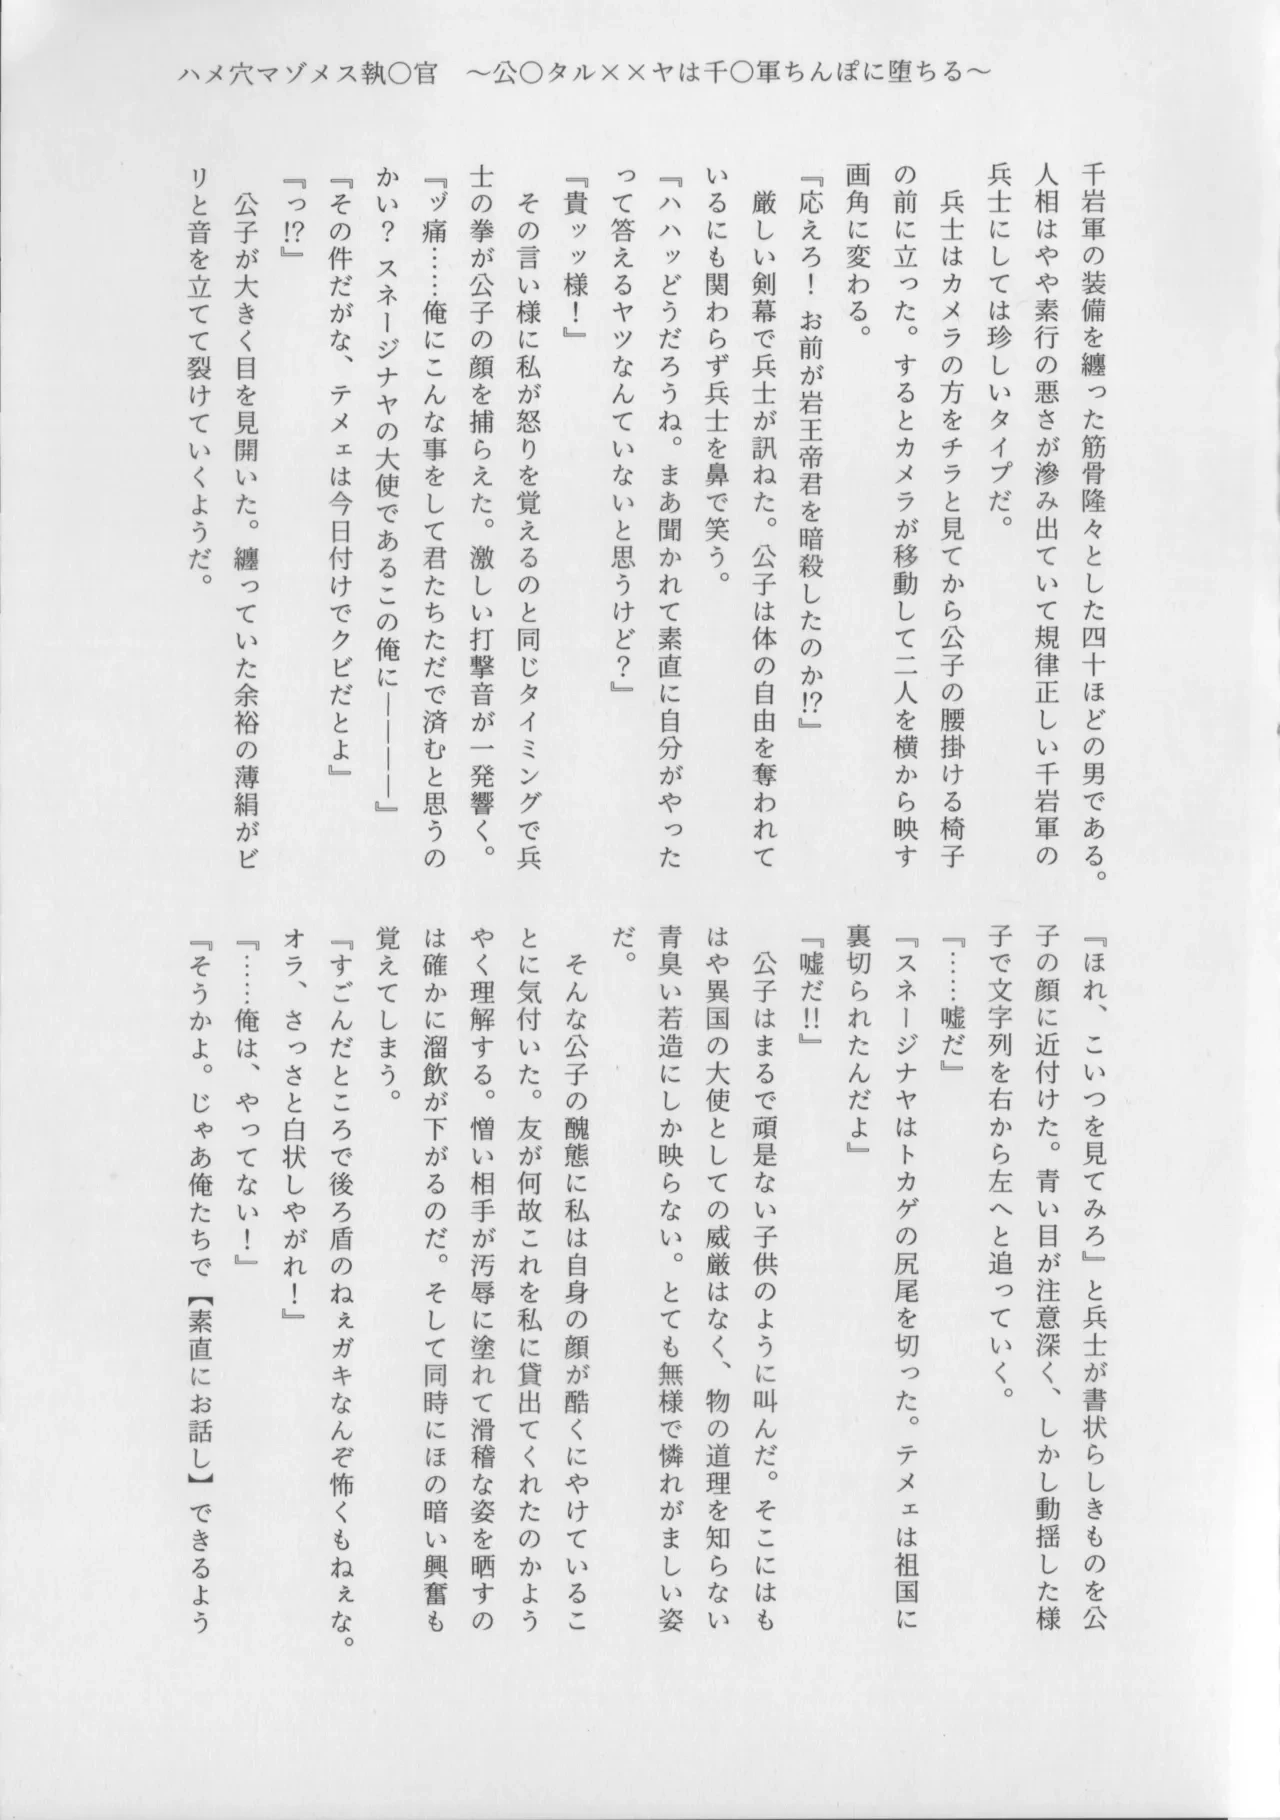 ハメ穴マゾメス執〇官　～公〇タル××ヤは千〇軍ちんぽに堕ちる～
千岩軍の装備を纏った筋骨隆々とした四十ほどの男である。
人相はやや素行の悪さが滲み出ていて規律正しい千岩軍の
兵士にしては珍しいタイプだ。
　兵士はカメラの方をチラと見てから公子の腰掛ける椅子
の前に立った。するとカメラが移動して二人を横から映す
画角に変わる。
『応えろ！　お前が岩王帝君を暗殺したのか⁉』
　厳しい剣幕で兵士が訊ねた。公子は体の自由を奪われて
いるにも関わらず兵士を鼻で笑う。
『ハハッどうだろうね。まあ聞かれて素直に自分がやった
って答えるヤツなんていないと思うけど？』
『貴ッッ様！』
　その言い様に私が怒りを覚えるのと同じタイミングで兵
士の拳が公子の顔を捕らえた。激しい打撃音が一発響く。
『ッ゛痛……俺にこんな事をして君たちただで済むと思うの
かい？　スネージナヤの大使であるこの俺に――――』
『その件だがな、テメェは今日付けでクビだとよ』
『っ⁉』
　公子が大きく目を見開いた。纏っていた余裕の薄絹がビ
リと音を立てて裂けていくようだ。
『ほれ、こいつを見てみろ』と兵士が書状らしきものを公
子の顔に近付けた。青い目が注意深く、しかし動揺した様
子で文字列を右から左へと追っていく。
『……嘘だ』
『スネージナヤはトカゲの尻尾を切った。テメェは祖国に
裏切られたんだよ』
『嘘だ‼』
　公子はまるで頑是ない子供のように叫んだ。そこにはも
はや異国の大使としての威厳はなく、物の道理を知らない
青臭い若造にしか映らない。とても無様で憐れがましい姿
だ。
　そんな公子の醜態に私は自身の顔が酷くにやけているこ
とに気付いた。友が何故これを私に貸出てくれたのかよう
やく理解する。憎い相手が汚辱に塗れて滑稽な姿を晒すの
は確かに溜飲が下がるのだ。そして同時にほの暗い興奮も
覚えてしまう。
『すごんだところで後ろ盾のねぇガキなんぞ怖くもねぇな。
オラ、さっさと白状しやがれ！』
『……俺は、やってない！』
『そうかよ。じゃあ俺たちで【素直にお話し】できるよう